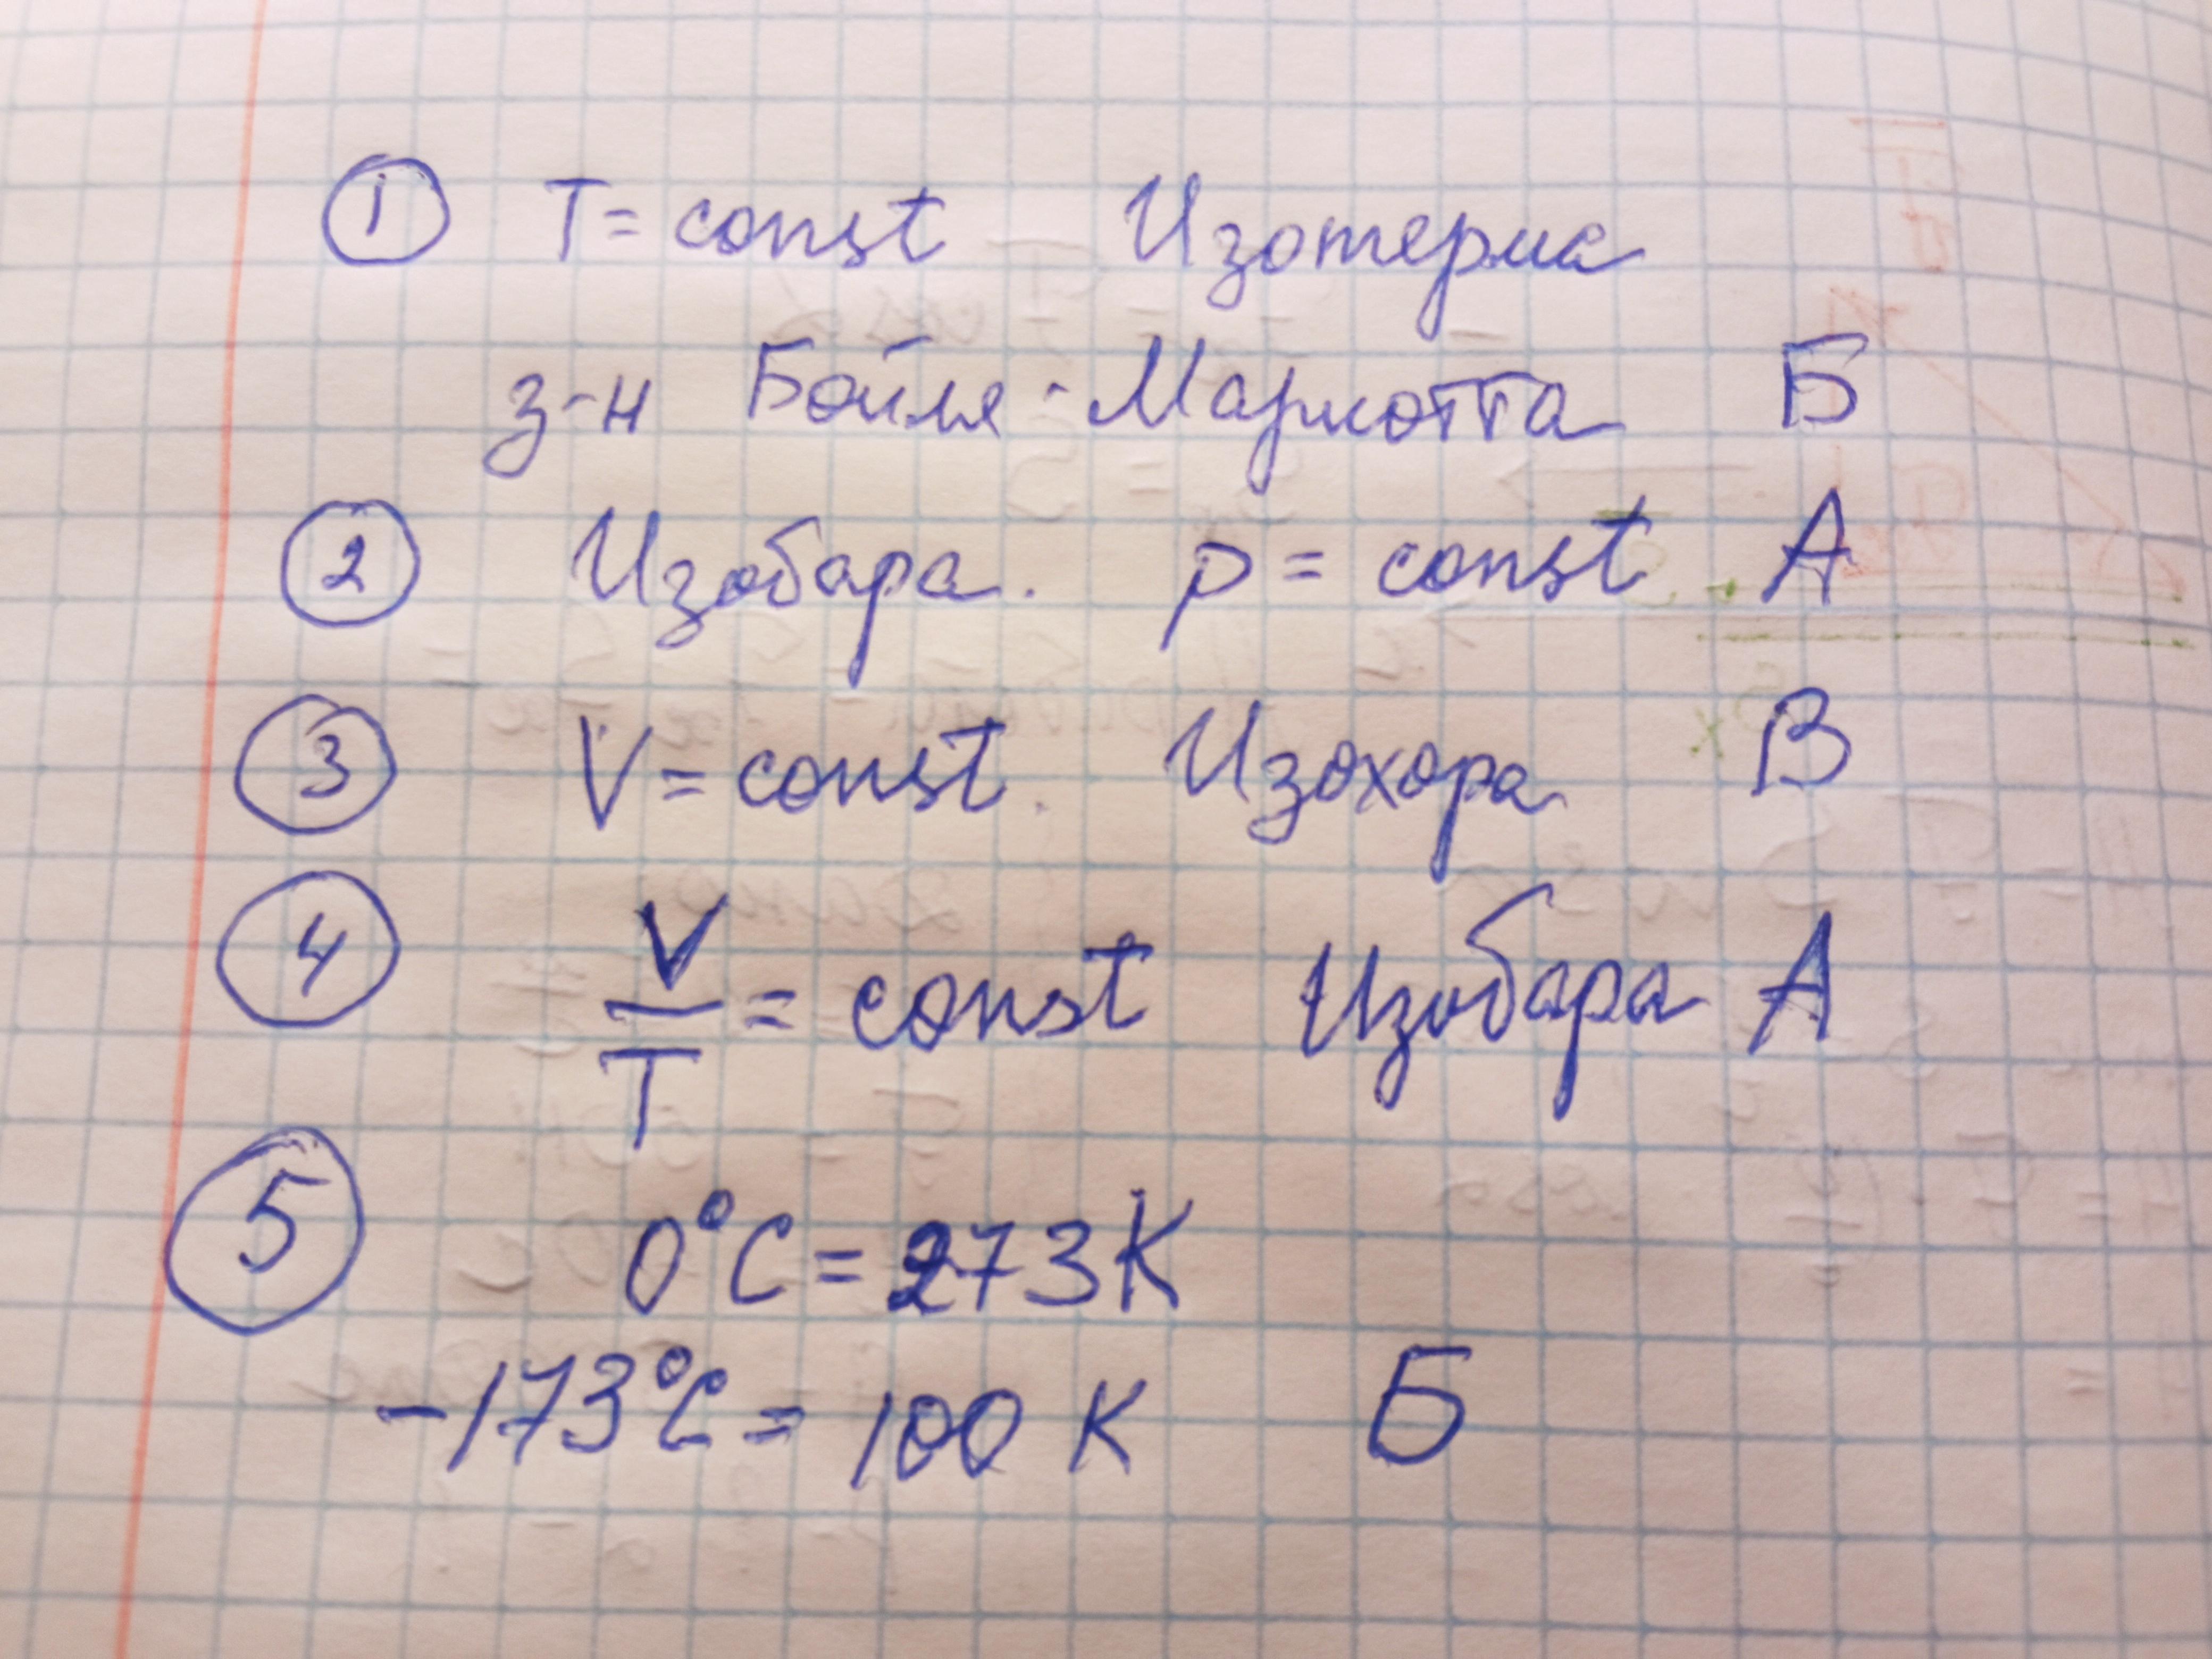 1 T = const Изотерма
з-н Бойля - Мариотта Б
2 Изобара. p = const А
3 V = const. Изохора В
4 V/T = const Изобара А
5 0°C = 273 K
-173°C = 100 K Б